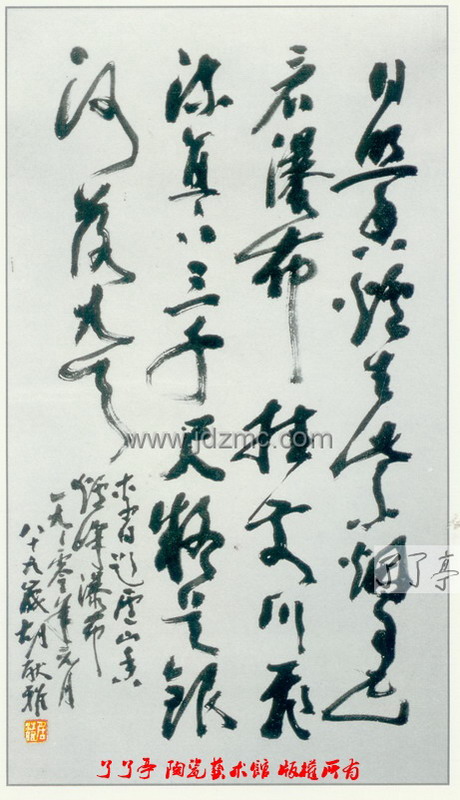 日照香爐生紫烟遥
看瀑布挂前川飛
流直下三千尺疑是銀
河落九天
李白題廬山香
爐峰瀑布
一九九零年元月
八十九歲胡献雅
www.jdzmc.com
了了亭
了了亭 陶瓷藝术館 版權所有